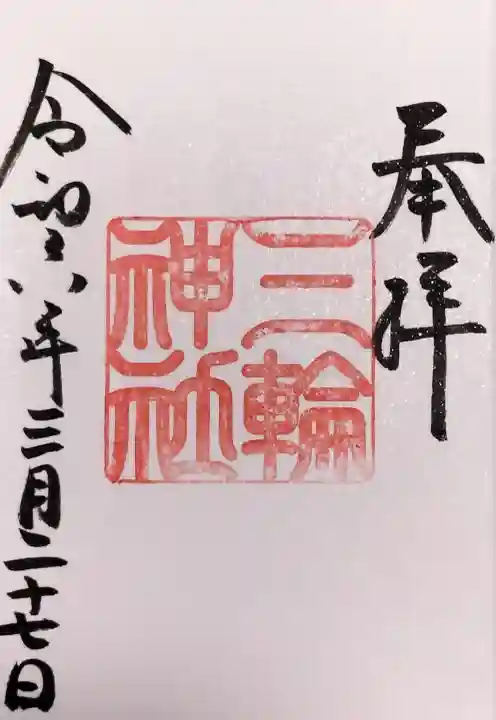 奉拝
三輪
神社
令和八年三月二十七日